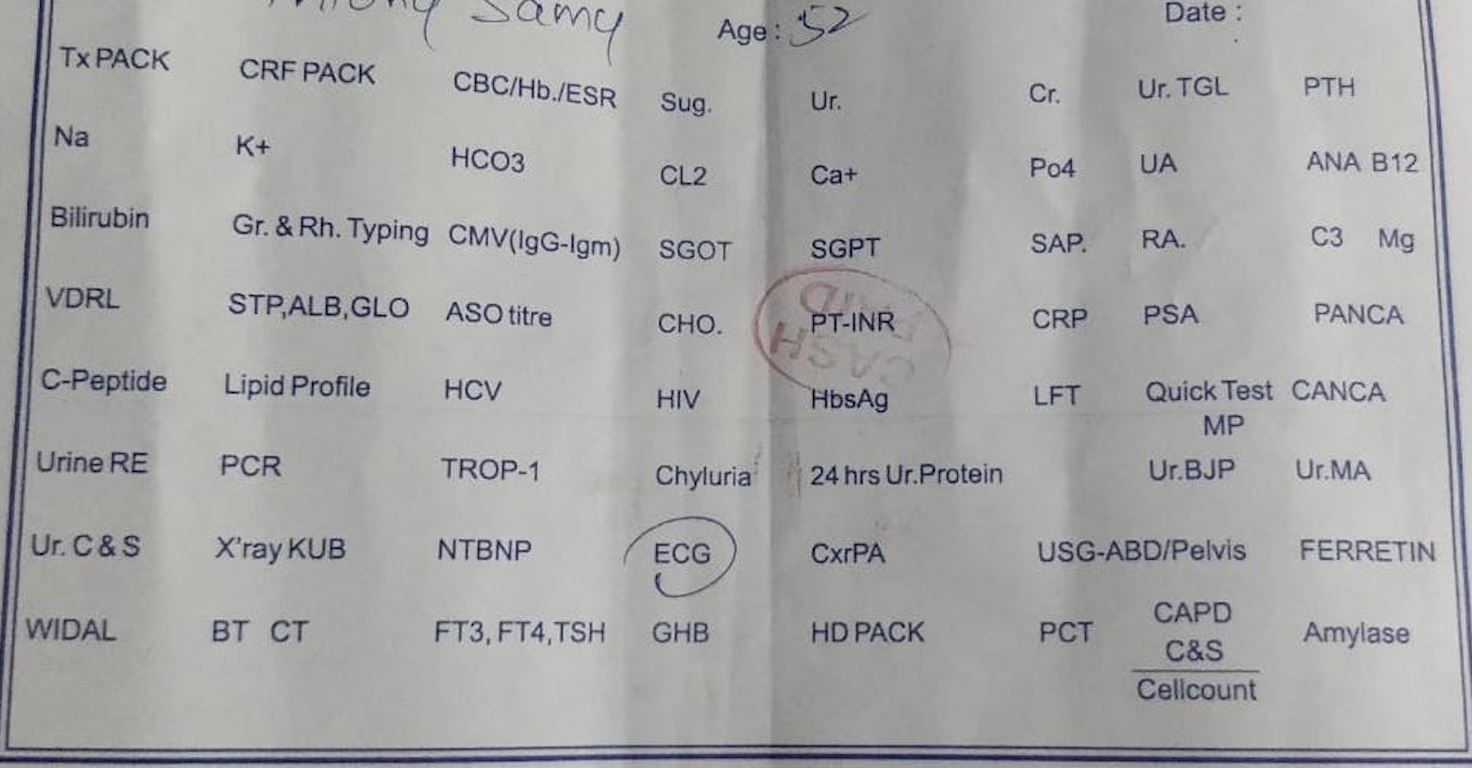 Samy Age : 52 Date :
Tx PACK CRF PACK CBC/Hb./ESR Sug. Ur. Cr. Ur. TGL PTH
Na K+ HCO3 CL2 Ca+ Po4 UA ANA B12
Bilirubin Gr. & Rh. Typing CMV(IgG-Igm) SGOT SGPT SAP. RA. C3 Mg
VDRL STP,ALB,GLO ASO titre CHO. PT-INR CRP PSA PANCA
CASH PAID
C-Peptide Lipid Profile HCV HIV HbsAg LFT Quick Test CANCA
MP
Urine RE PCR TROP-1 Chyluria 24 hrs Ur.Protein Ur.BJP Ur.MA
Ur. C & S X'ray KUB NTBNP ECG CxrPA USG-ABD/Pelvis FERRETIN
WIDAL BT CT FT3, FT4,TSH GHB HD PACK PCT CAPD Amylase
C&S
Cellcount